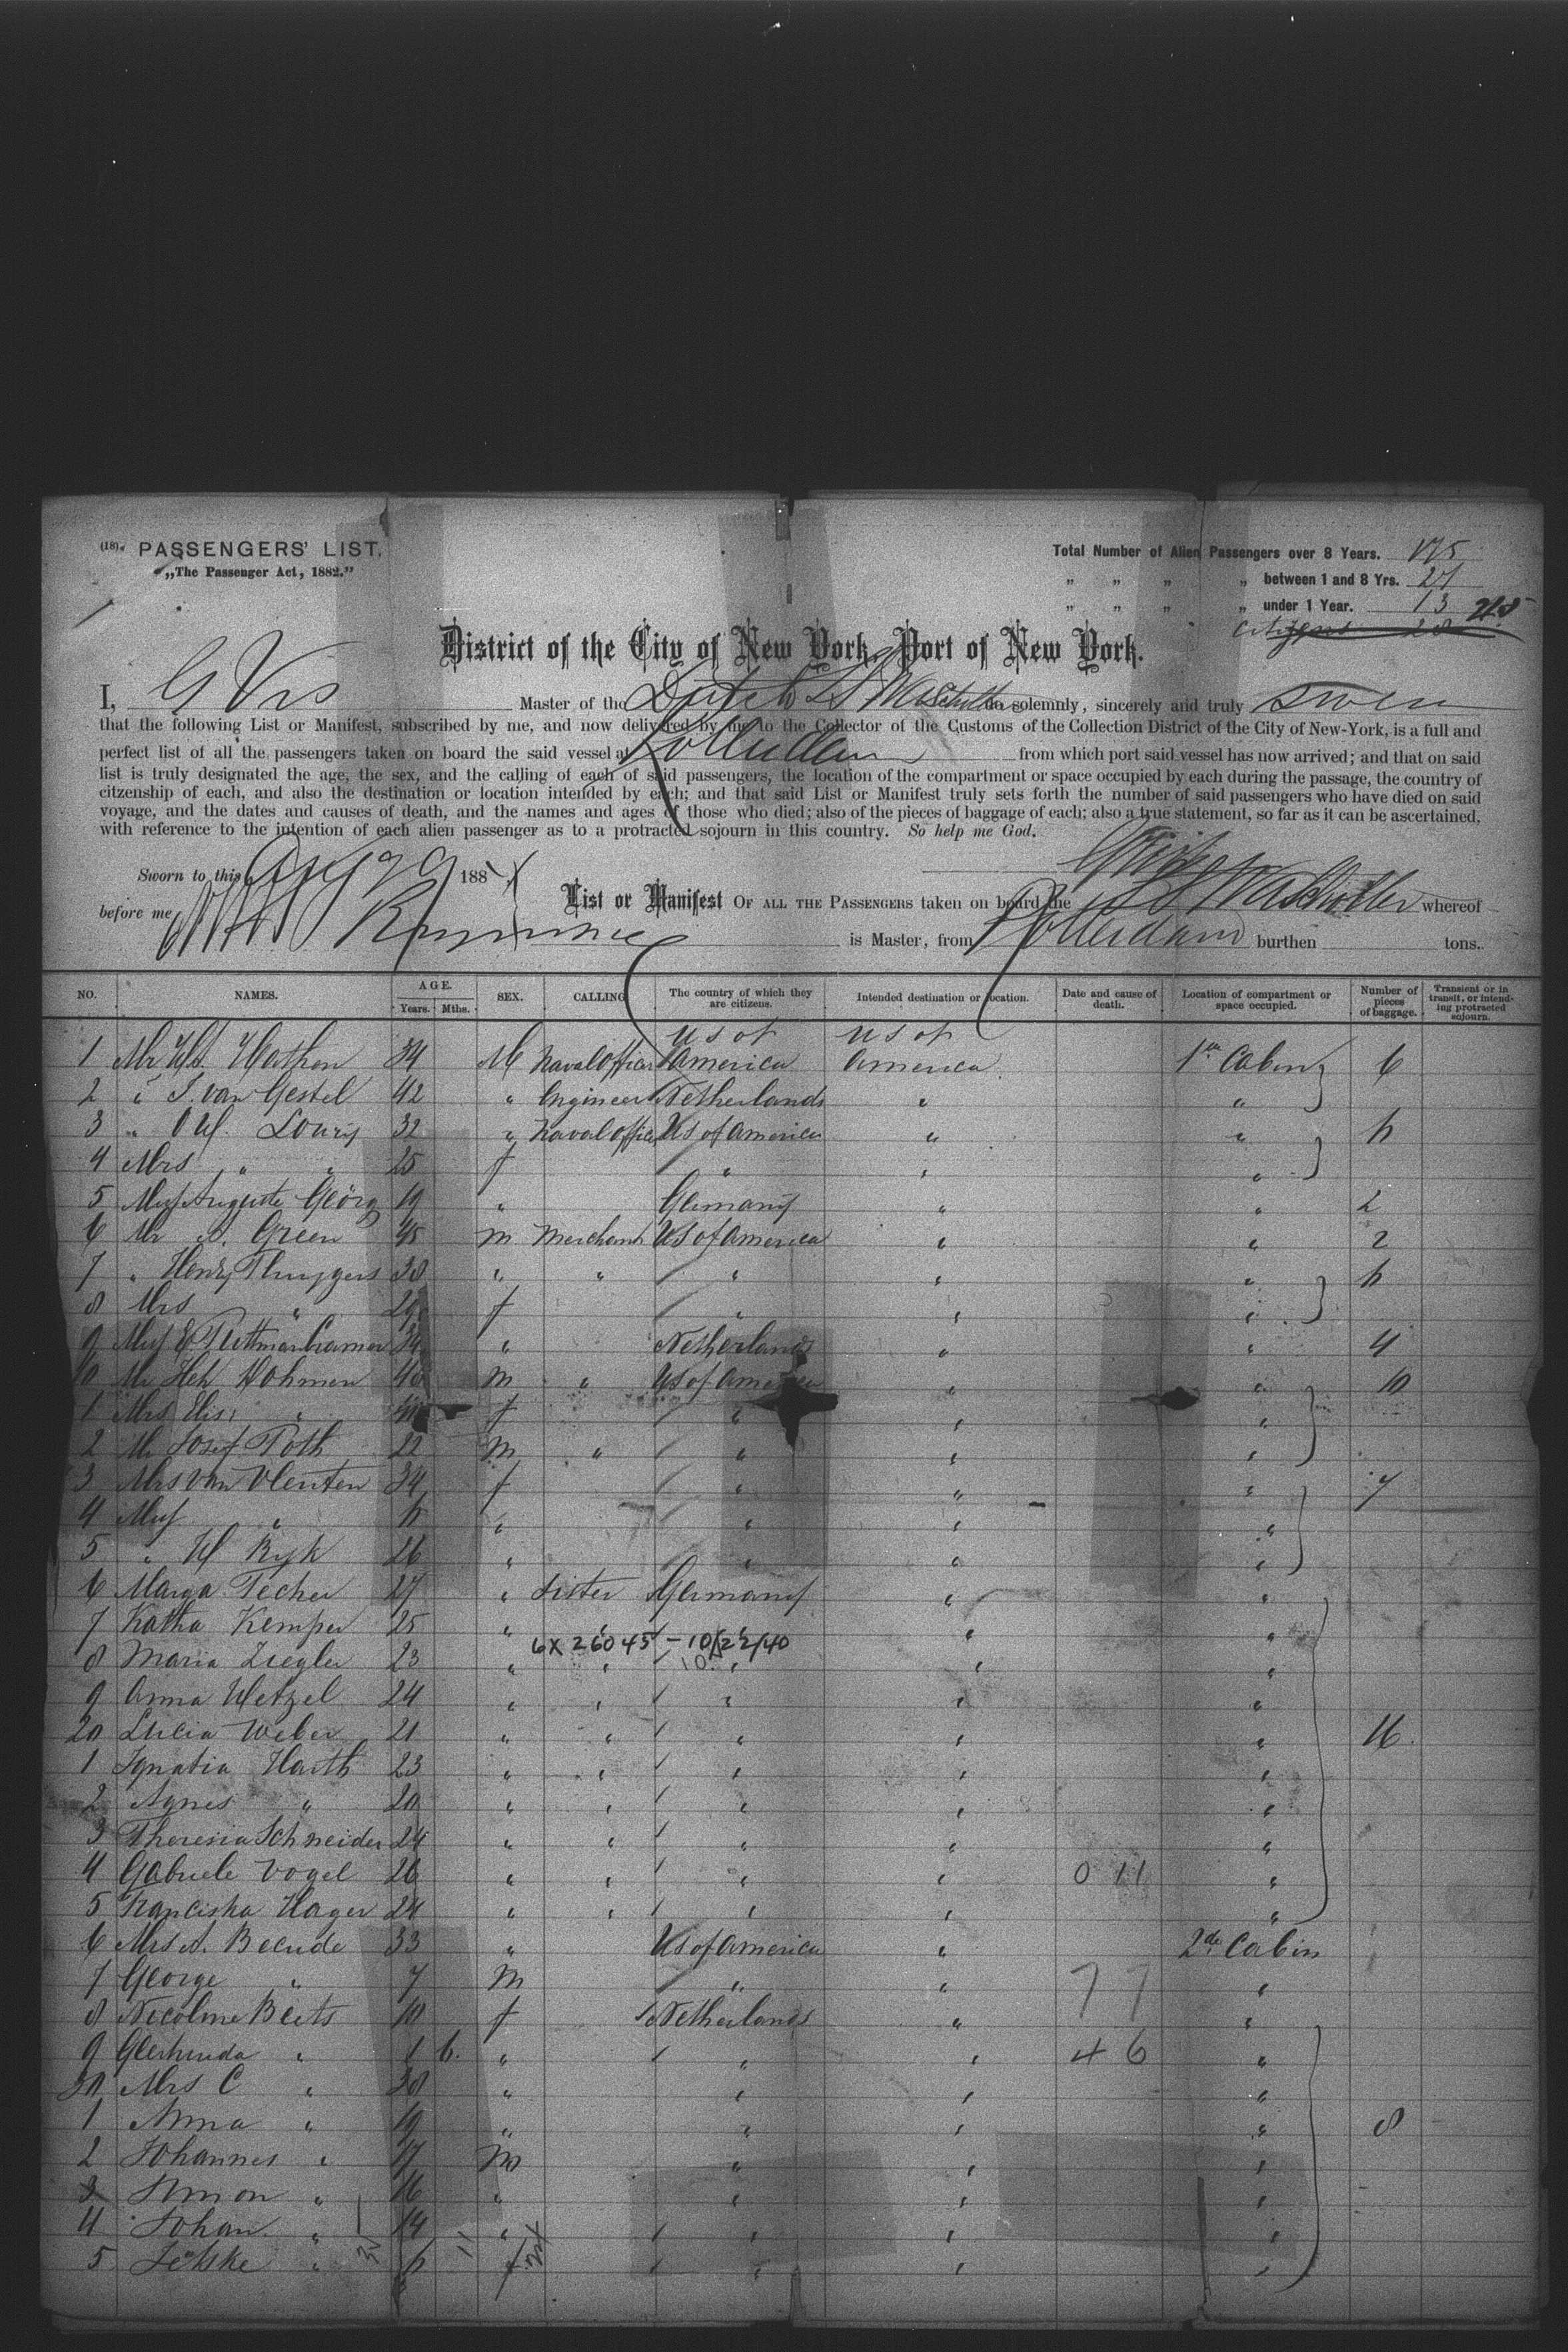 (18). PASSENGERS' LIST.
„The Passenger Act, 1882."
Total Number of Alien Passengers over 8 Years. 175
„ „ „ „ between 1 and 8 Yrs. 27
„ „ „ „ under 1 Year. 13 215
Citizens 28
District of the City of New York, Port of New York.
I, G Vis Master of the Dutch SS W A Scholten do solemnly, sincerely and truly swear
that the following List or Manifest, subscribed by me, and now delivered by me to the Collector of the Customs of the Collection District of the City of New-York, is a full and
perfect list of all the passengers taken on board the said vessel at Rotterdam from which port said vessel has now arrived; and that on said
list is truly designated the age, the sex, and the calling of each of said passengers, the location of the compartment or space occupied by each during the passage, the country of
citzenship of each, and also the destination or location intended by each; and that said List or Manifest truly sets forth the number of said passengers who have died on said
voyage, and the dates and causes of death, and the names and ages of those who died; also of the pieces of baggage of each; also a true statement, so far as it can be ascertained,
with reference to the intention of each alien passenger as to a protracted sojourn in this country. So help me God.
Sworn to this Aug 29 188
before me
List or Manifest OF ALL THE PASSENGERS taken on board the SS W A Scholten whereof
is Master, from Rotterdam burthen tons..
NO. NAMES. AGE. Years. Mths. SEX. CALLING The country of which they are citizens. Intended destination or location. Date and cause of death. Location of compartment or space occupied. Number of pieces of baggage. Transient or in transit, or intending protracted sojourn.
1 Mr 34 M Naval Officer US of America US of America 1st Cabin 6
2 " J. van Gestel 42 " Engineer Netherlands " "
3 " Lowry 32 " Naval officer US of America " " 6
4 Mrs " " 25 f " " "
5 Miss Auguste Georg 19 " Germany " " 2
6 Mr Green 45 m Merchant US of America " " 2
7 " Henry 38 " " " " " 6
8 Mrs " f " " "
9 Miss E 34 " Netherlands " " 4
10 Mr Hch Hohmen 48 m " US of America " " 10
1 Mrs Elis: " f " " "
2 Mr Josef Poth 22 m " " " "
3 Mrs van Vleuten 34 f " " " 7
4 Miss " 6 " " " "
5 " Ryk 26 " " " "
6 Marga Techer 27 " Sister Germany " "
7 Katha Kemper 25 " " " " "
6X 26045 - 10/22/40
8 Maria Ziegler 23 " " " " "
9 Anna Wetzel 24 " " " " "
20 Lucia Weber 21 " " " " " 16
1 Ignatia Harth 23 " " " " "
2 Agnes " 20 " " " " "
3 Theresia Schneider 24 " " " " "
4 Gabriele Vogel 26 " " " " 0 11 "
5 Franciska Hager 24 " " " " "
6 Mrs A. 33 " US of America " 2de Cabin
7 George " 7 m " " 7 7 "
8 Nicoline Beets 10 f Netherlands " "
9 Gertruida " 1 6. " " " 4 6 "
30 Mrs C " 38 " " " "
1 Anna " 19 " " " " 8
2 Johannes " 17 m " " "
3 Simon " 16 " " " "
4 Johan " 14 " " " "
5 Jetske " 6 f " " "